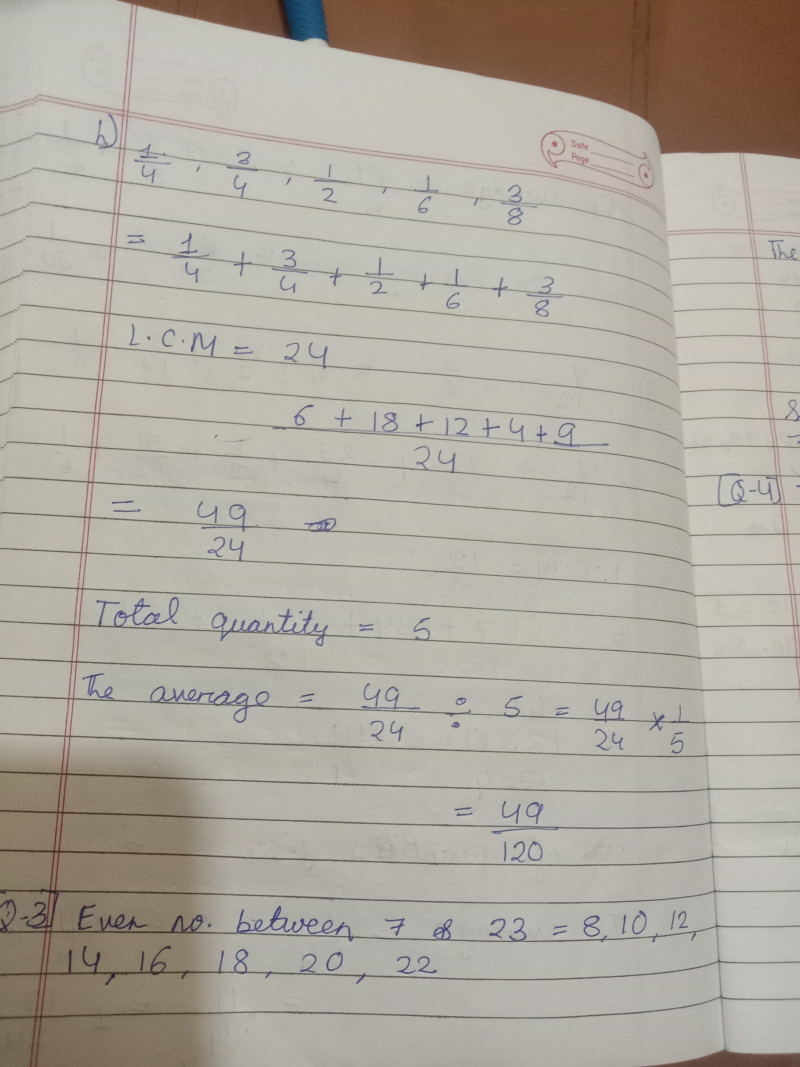 Date
Page
h) 1/4 , 3/4 , 1/2 , 1/6 , 3/8
= 1/4 + 3/4 + 1/2 + 1/6 + 3/8
L.C.M = 24
6 + 18 + 12 + 4 + 9 / 24
= 49/24
Total quantity = 5
The average = 49/24 ÷ 5 = 49/24 × 1/5
= 49/120
Q-3] Even no. between 7 & 23 = 8, 10, 12,
14, 16, 18, 20, 22
The
8
[Q-4]